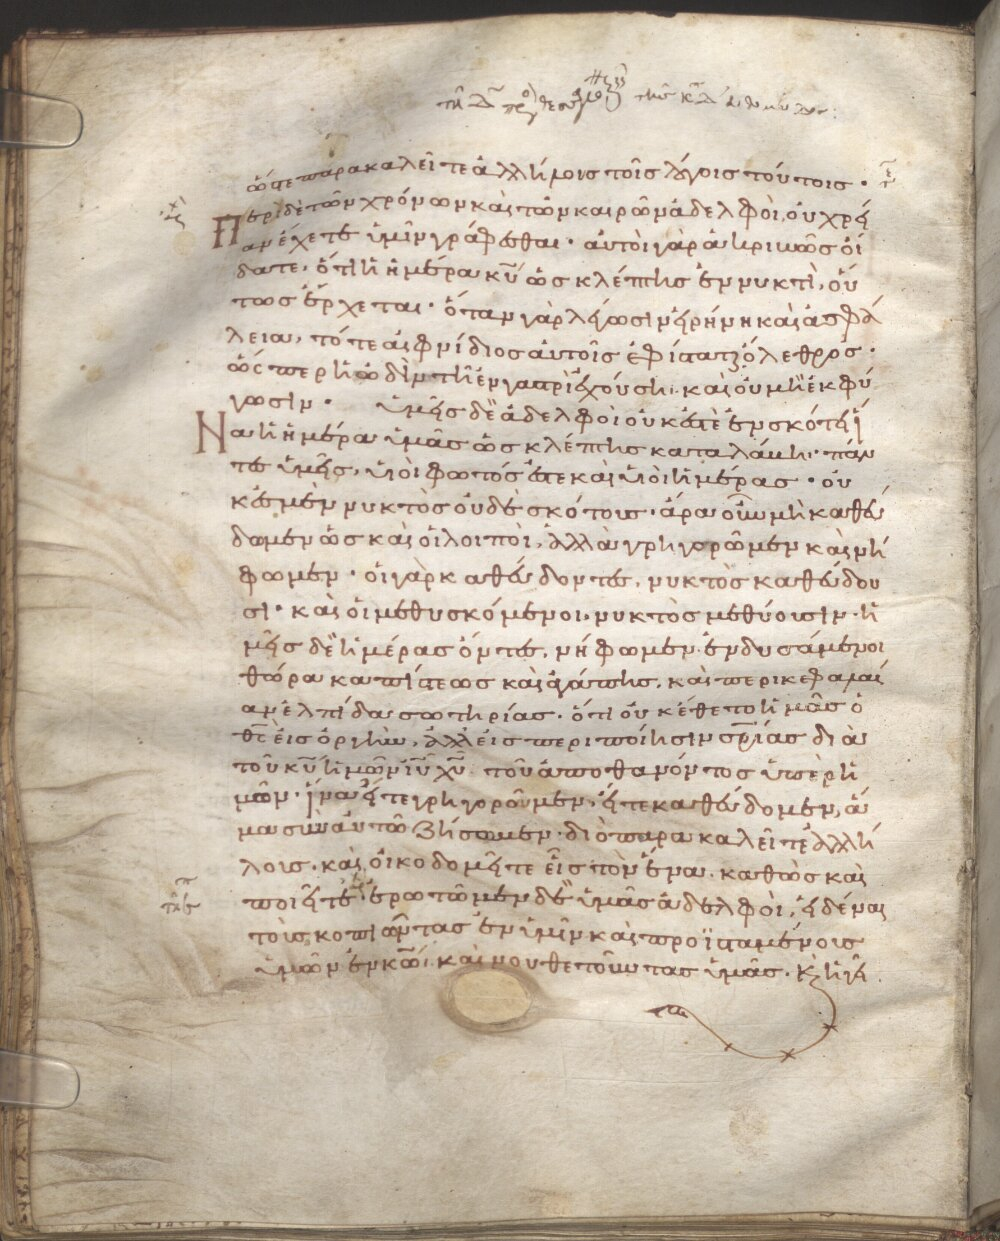 ὥστε παρακαλεῖτε ἀλλήλους τοῖς λόγοις τούτοις·
Περὶ δὲ τῶν χρόνων καὶ τῶν καιρῶν ἀδελφοὶ, οὐ χρεί
αν ἔχετε ὑμῖν γράφεσθαι· αὐτοὶ γὰρ ἀκριβῶς οἴ
δατε, ὅτι ἡ ἡμέρα κ̅υ̅ ὡς κλέπτης ἐν νυκτὶ, οὕ
τως ἔρχεται· ὅταν γὰρ λέγωσιν εἰρήνη καὶ ἀσφά
λεια, τότε αἰφνίδιος αὐτοῖς ἐφίσταται ὄλεθρος·
ὥσπερ ἡ ὠδὶν τῇ ἐν γαστρὶ ἐχούσῃ· καὶ οὐ μὴ ἐκφύ
γωσιν· ὑμεῖς δὲ ἀδελφοὶ οὐκ ἐστὲ ἐν σκότει ἵ
Να ἡ ἡμέρα ὑμᾶς ὡς κλέπτης καταλάβῃ· πάν
τες ὑμεῖς, υἱοὶ φωτός ἐστε καὶ υἱοὶ ἡμέρας· οὐ
κ ἐσμὲν νυκτὸς οὐδὲ σκότους· ἄρα οὖν μὴ καθεύ
δομεν ὡς καὶ οἱ λοιποὶ, ἀλλὰ γρηγορῶμεν καὶ νή
φωμεν· οἱ γὰρ καθεύδοντες, νυκτὸς καθεύδου
σι· καὶ οἱ μεθυσκόμενοι, νυκτὸς μεθύουσιν· ἡ
μεῖς δὲ ἡμέρας ὄντες, νήφωμεν· ἐνδυσάμενοι
θώρακα πίστεως καὶ ἀγάπης, καὶ περικεφαλαί
αν ἐλπίδα σωτηρίας· ὅτι οὐκ ἔθετο ἡμᾶς ὁ
θ̅ς̅ εἰς ὀργὴν, ἀλλ εἰς περιποίησιν σ̅ρ̅ίας διὰ
τοῦ κ̅υ̅ ἡμῶν ἰ̅υ̅ χ̅υ̅ τοῦ ἀποθανόντος ὑπὲρ ἡ
μῶν· ἵνα εἴτε γρηγοροῦμεν, εἴτε καθεύδομεν, ἅ
μα σὺν αὐτῶ ζήσωμεν· διὸ παρακαλεῖτε ἀλλή
λους· καὶ οἰκοδομεῖτε εἷς τὸν ἕνα· καθὼς καὶ
ποιεῖτε· ἐρωτῶμεν δὲ ὑμᾶς ἀδελφοὶ, εἰδέναι
τοὺς κοπιῶντας ἐν ὑμῖν καὶ προϊσταμένους
ὑμῶν ἐν κ̅ω̅· καὶ νουθετοῦντας ὑμᾶς· κ ἡγεῖ